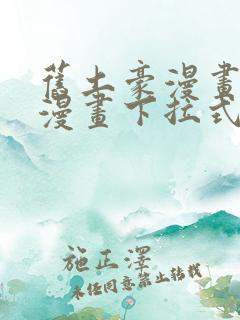 舊土豪漫畫
漫畫下拉式
施正澤
未经同意禁止转载